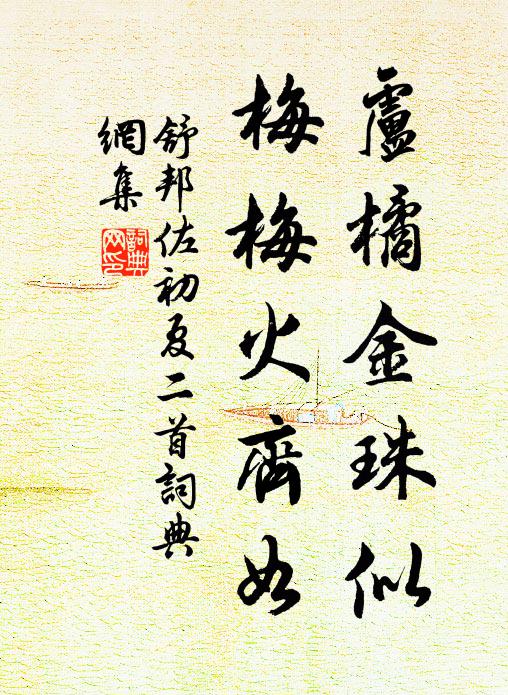 盧橘金珠似
梅梅火齊如
舒邦佐初夏二首詞典
網集
詞典
网印